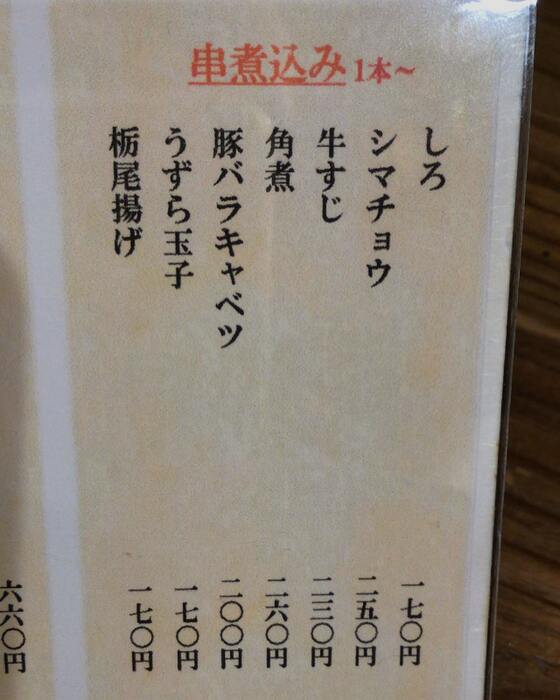 串煮込み 1本～
しろ 一七〇円
シマチョウ 二五〇円
牛すじ 二三〇円
角煮 二六〇円
豚バラキャベツ 二〇〇円
うずら玉子 一七〇円
栃尾揚げ 一七〇円
六六〇円